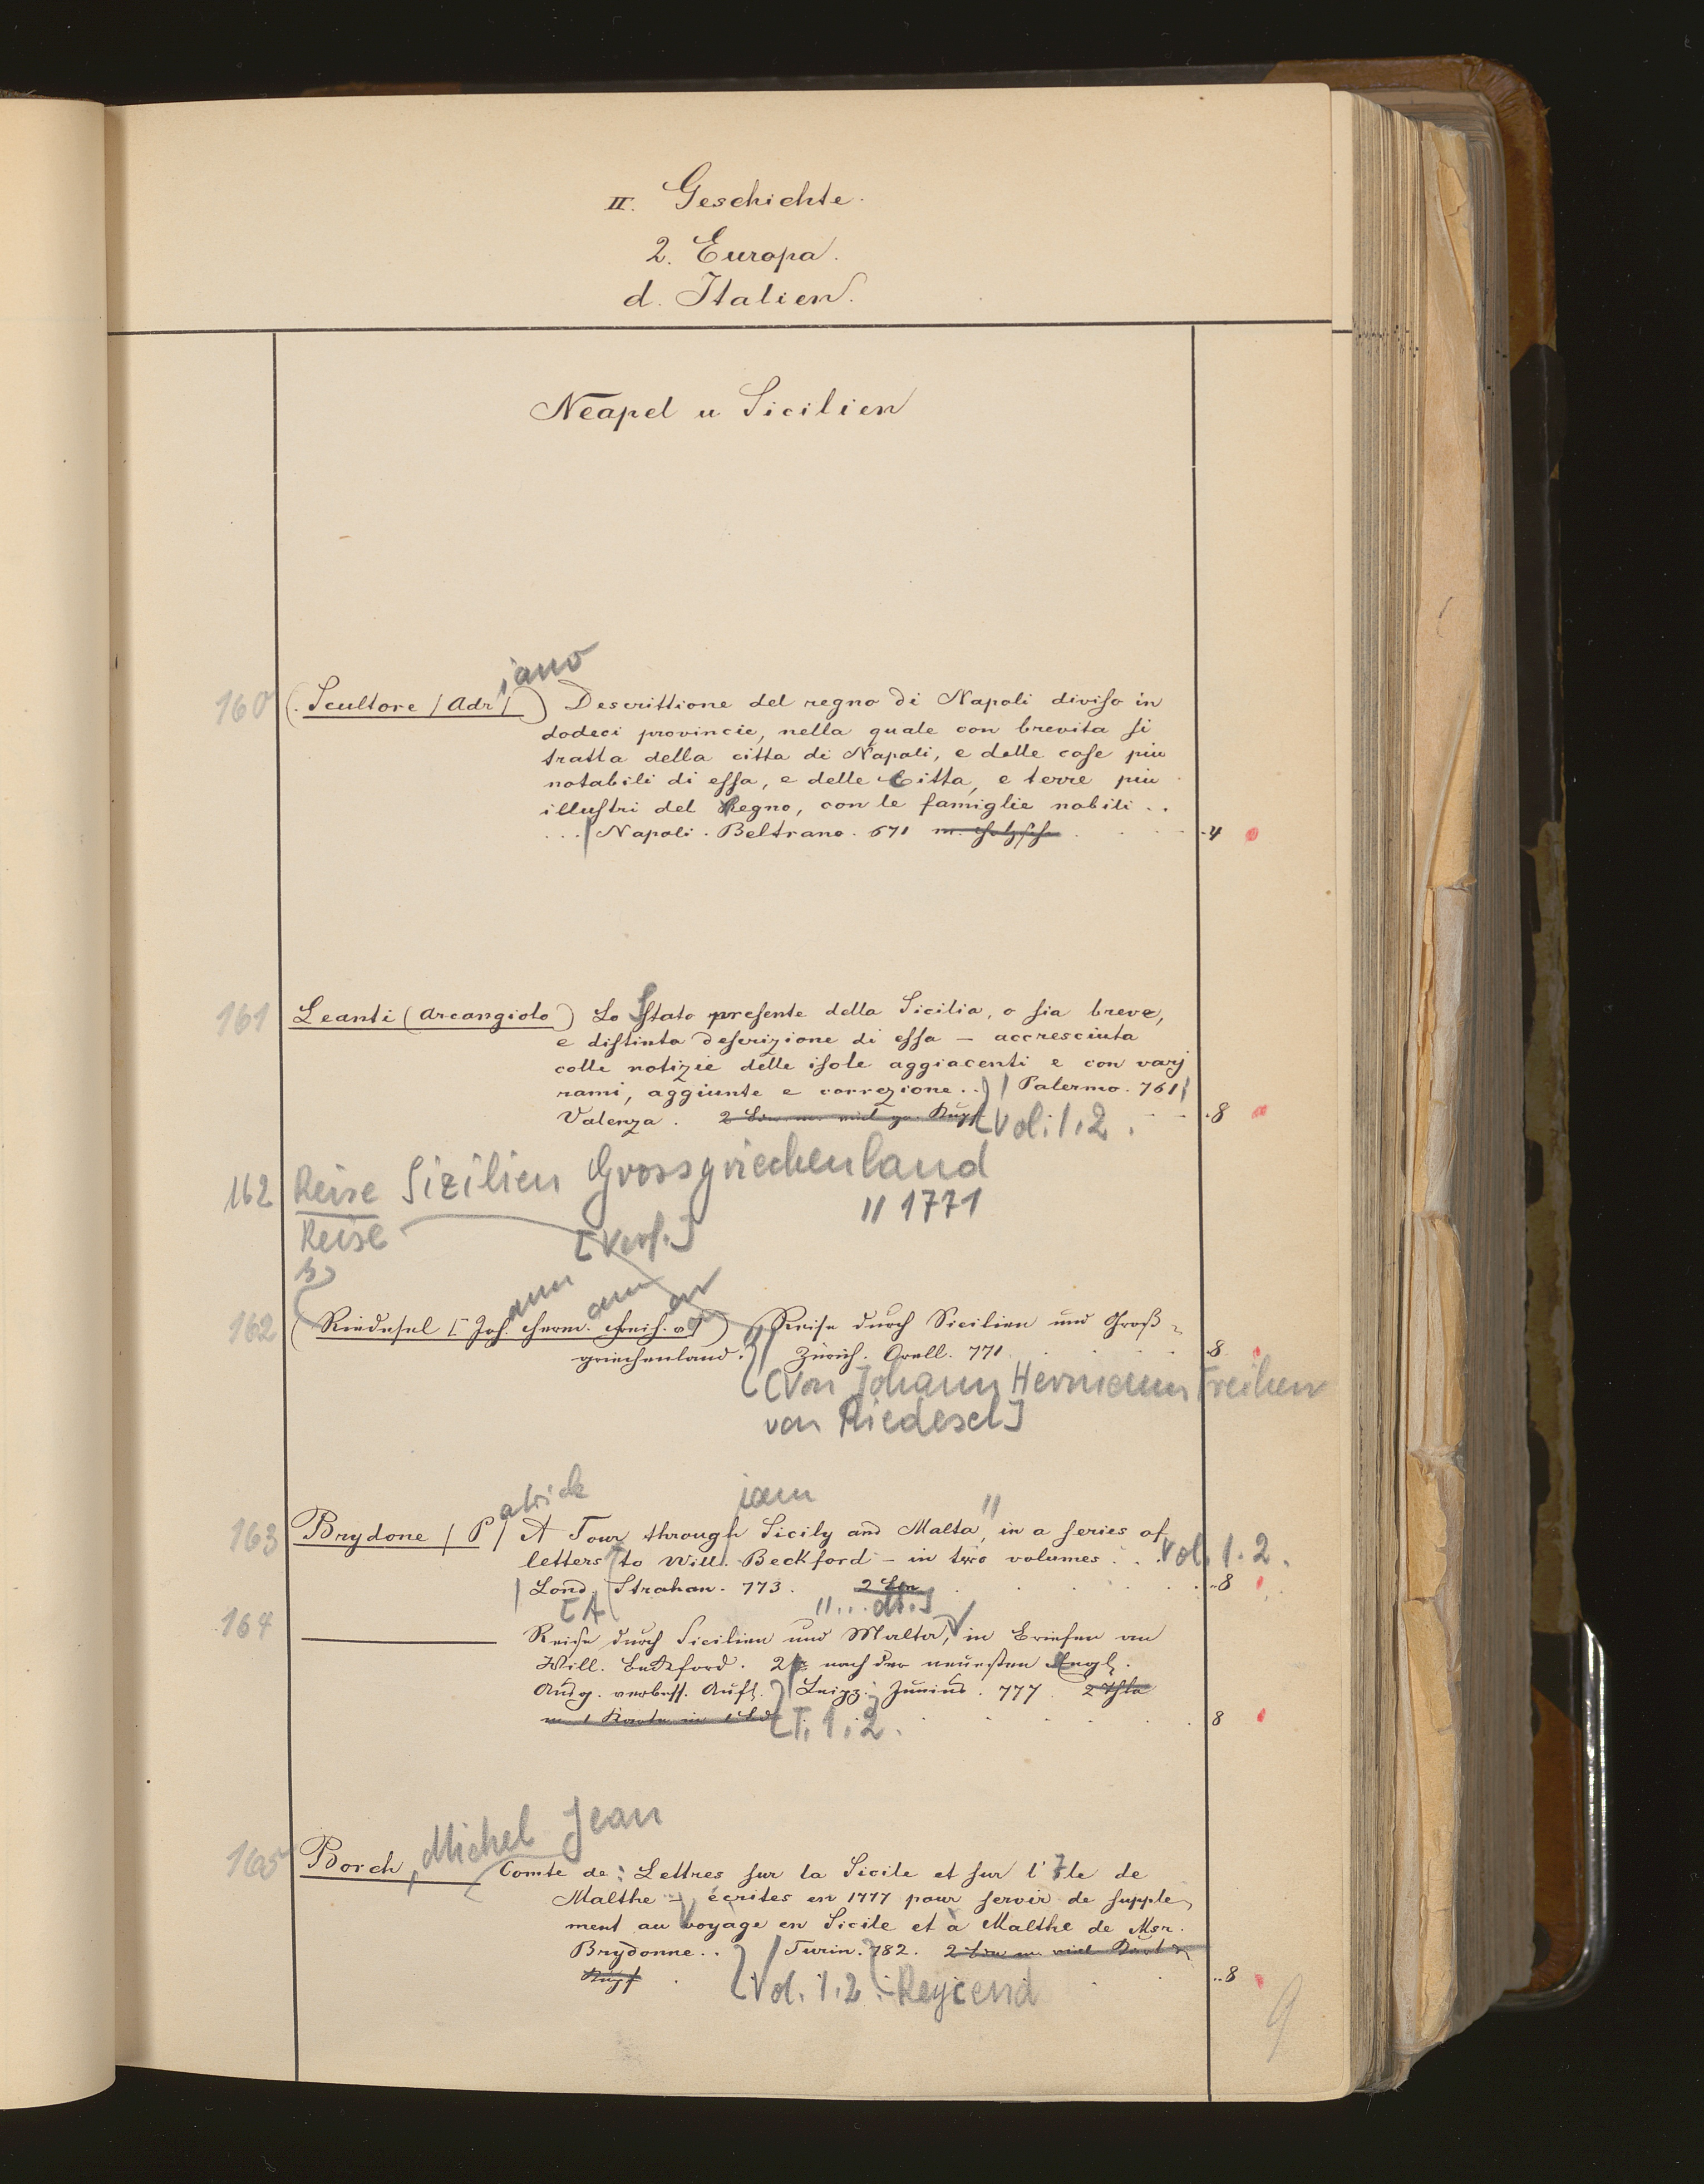 II. Geschichte.
2. Europa.
d. Italien.
Neapel u Sicilien
iano
160 (Scultore / Adr /) Descrittione del regno di Napoli diviso in
dodeci provincie, nella quale con brevita si
tratta della citta di Napoli, e delle cose piu
notabili di essa, e delle Citta, e terre piu
illustri del Regno, con le famiglie nobili ..
... / Napoli. Beltrano. 671 m. Holzsch. 4
161 Leanti (Arcangiolo) Lo Stato presente della Sicilia, o sia breve,
e distinta descrizione di essa — accresciuta
colle notizie delle isole aggiacenti e con varj
rami, aggiunte e correzione .. / Palermo. 761 /
Valenza. 2 Bde m. viel gr. Kupf [Vol. 1.2. 8
162 Reise Sizilien Grossgriechenland
Reise // 1771
[Verf.]
ann ann rr
162 (Riedesel [Joh. Herm. Freih. v]) Reise durch Sicilien und Groß-
griechenland. / Zürich. Orell. 771 8
[(Von Johann Hermann Freiherr
von Riedesel]
atrick iam //
163 Brydone / P / A Tour through Sicily and Malta, in a series of
letters to Will. Beckford - in two volumes .. Vol. 1.2.
/ Lond. Strahan. 773. 2 Bde 8
[A // ... dt.]
164 ——— Reise durch Sicilien und Malta, in Briefen an
Will. Beckford. 2te nach der neuesten Engl.
Ausg. verbess. Aufl. / Leipz. Junius. 777. 2 Thle
m 1 Karte in 1 Bd [T. 1.2. 8
Michel Jean
165 Borch, Comte de: Lettres sur la Sicile et sur l'Ile de
Malthe - écrites en 1777 pour servir de supple-
ment au voyage en Sicile et à Malthe de Msr.
Brydonne .. / Turin. 782. 2 Bde m. viel Kart u
Kupf [Vol. 1.2. Reycend 8
9